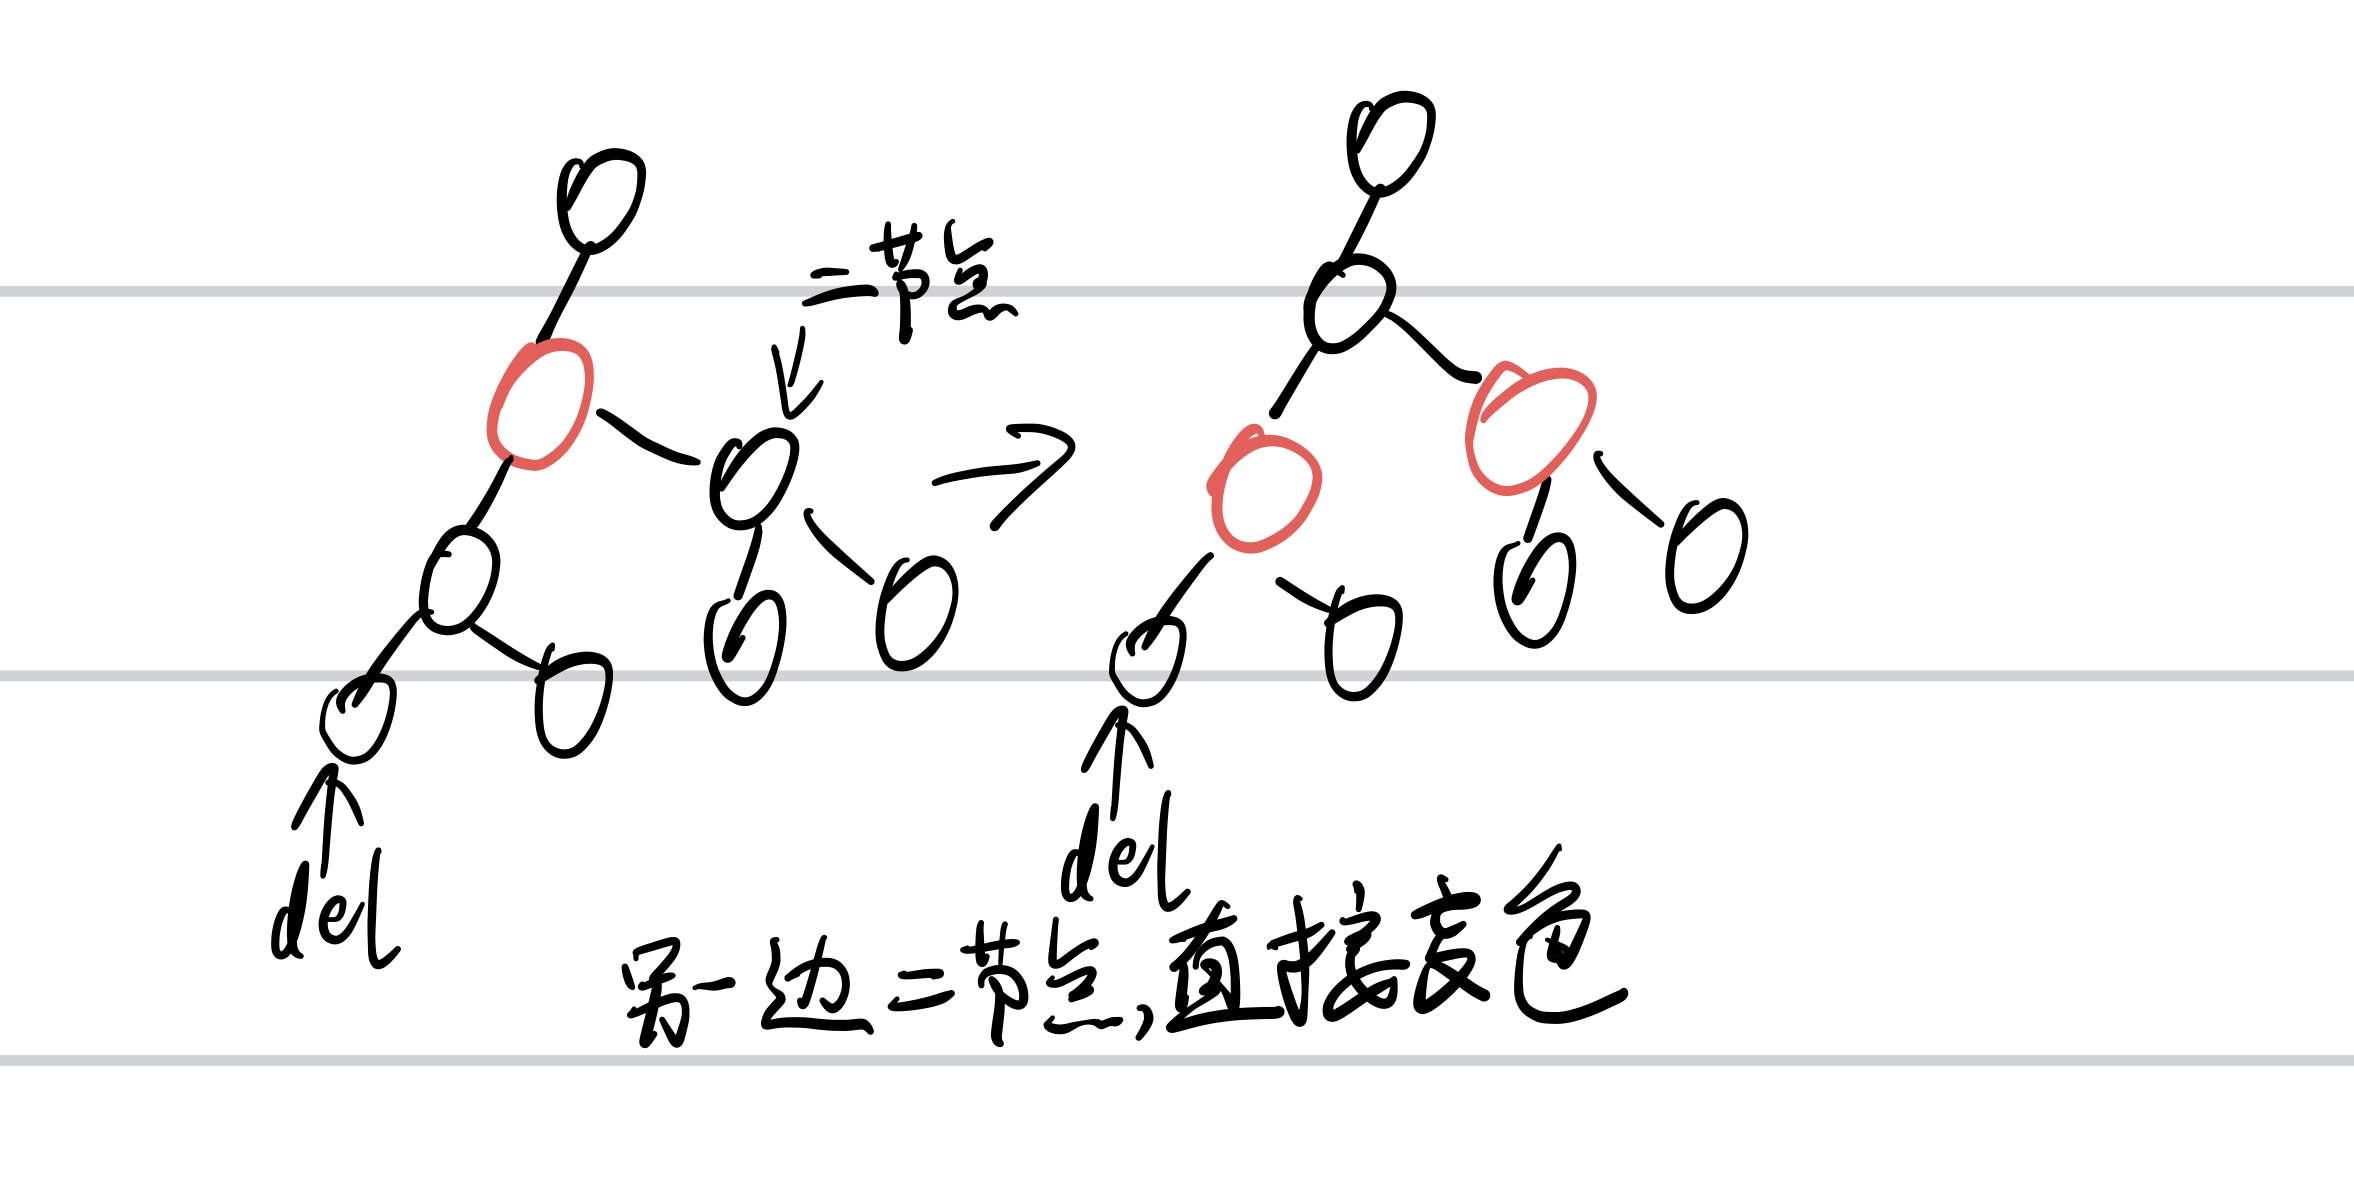 二节点
del
del
另一边二节点,直接变色